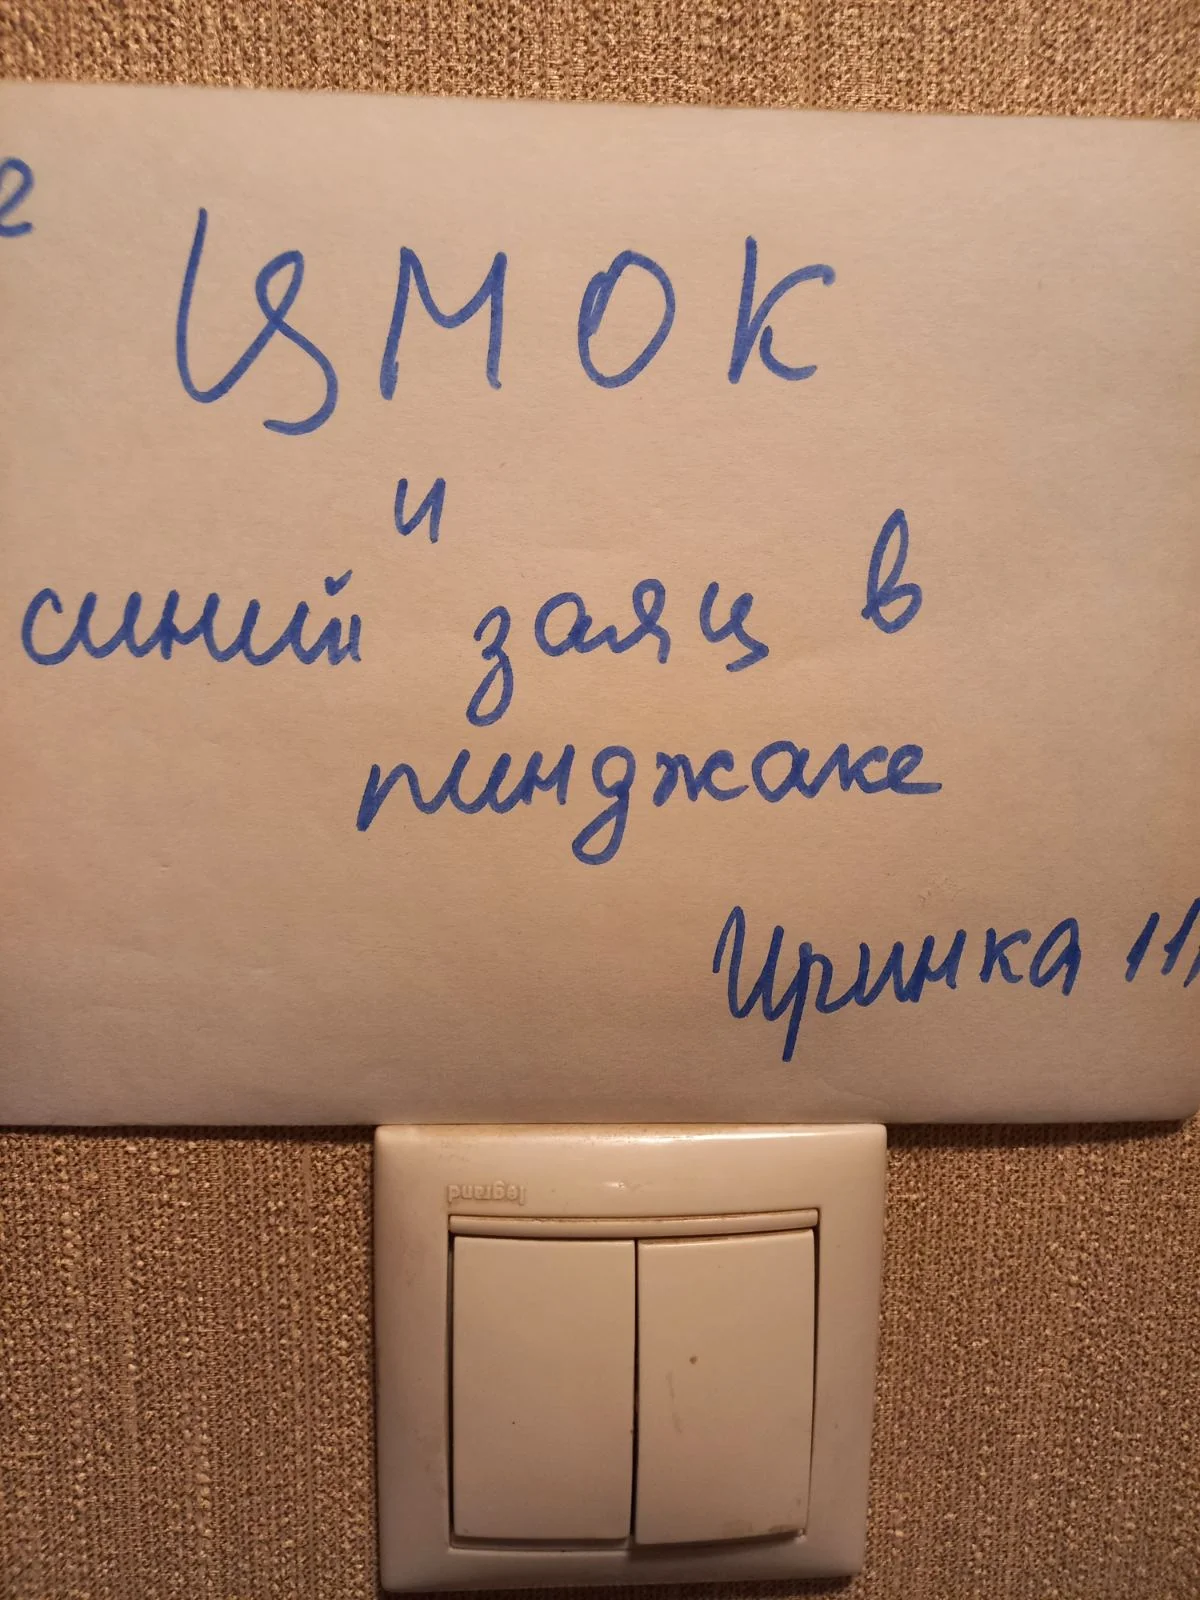 ЦМОК
и
синий заяц в
пинджаке
Иринка 11
legrand